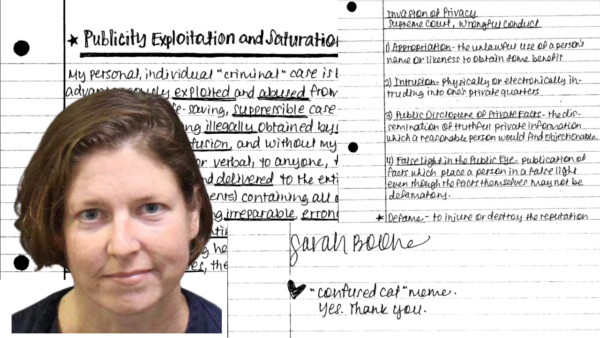 ★ Publicity Exploitation and Saturatio
My personal, individual "criminal" case is
exploited and abused
-saving, suppressible case
illegally obtained by
fusion, and without my
or verbal, to anyone,
and delivered to the enti
ents) containing all
irreparable
Invasion of Privacy
Supreme Court, Wrongful Conduct
1) Appropriation - the unlawful use of a person's
name or likeness to obtain some benefit
2) Intrusion - physically or electronically in-
truding into one's private quarters.
3) Public Disclosure of Private Facts - the dis-
semination of truthful private information
which a reasonable person would find objectionable.
4) False light in the Public Eye - publication of
facts which place a person in a false light
even though the facts themselves may not be
defamatory.
★ Defame - to injure or destroy the reputation
Sarah Boone
♥ "confused cat" meme.
Yes. Thank you.